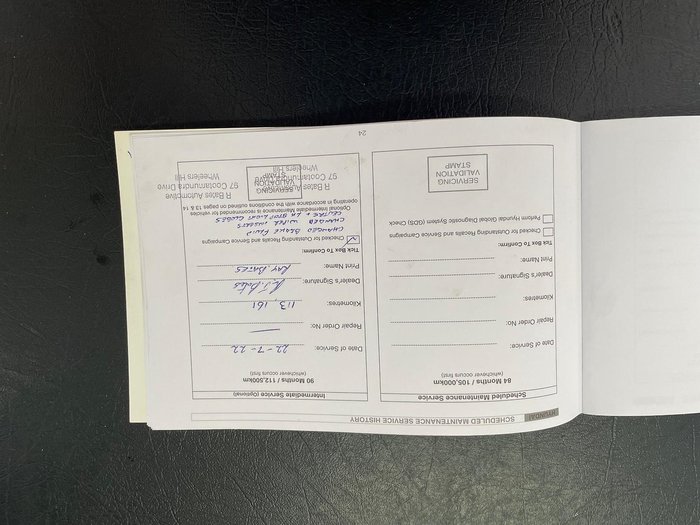 HYUNDAI SCHEDULED MAINTENANCE SERVICE HISTORY
Scheduled Maintenance Service
84 Months / 105,000km
(whichever occurs first)
Date of Service:
Repair Order No:
Kilometres:
Dealer's Signature:
Print Name:
Tick Box To Confirm:
Checked for Outstanding Recalls and Service Campaigns
Perform Hyundai Global Diagnostic System (GDS) Check
SERVICING
VALIDATION
STAMP
Intermediate Service (Optional)
90 Months / 112,500km
(whichever occurs first)
Date of Service: 22-7-22
Repair Order No: —
Kilometres: 113,161
Dealer's Signature: R.J. Bates
Print Name: RAY BATES
Tick Box To Confirm:
Checked for Outstanding Recalls and Service Campaigns
CHANGED BRAKE FLUID
CHANGED WIPER INSERTS
CENTRE & LH STOPLIGHT GLOBES
Optional Intermediate Maintenance is recommended for vehicles
operating in accordance with the conditions outlined on pages 13 & 14
R Bates Automotive
97 Cootamundra Drive
Wheelers Hill
SERVICING
VALIDATION
STAMP
R Bates Automotive
97 Cootamundra Drive
Wheelers Hill
24